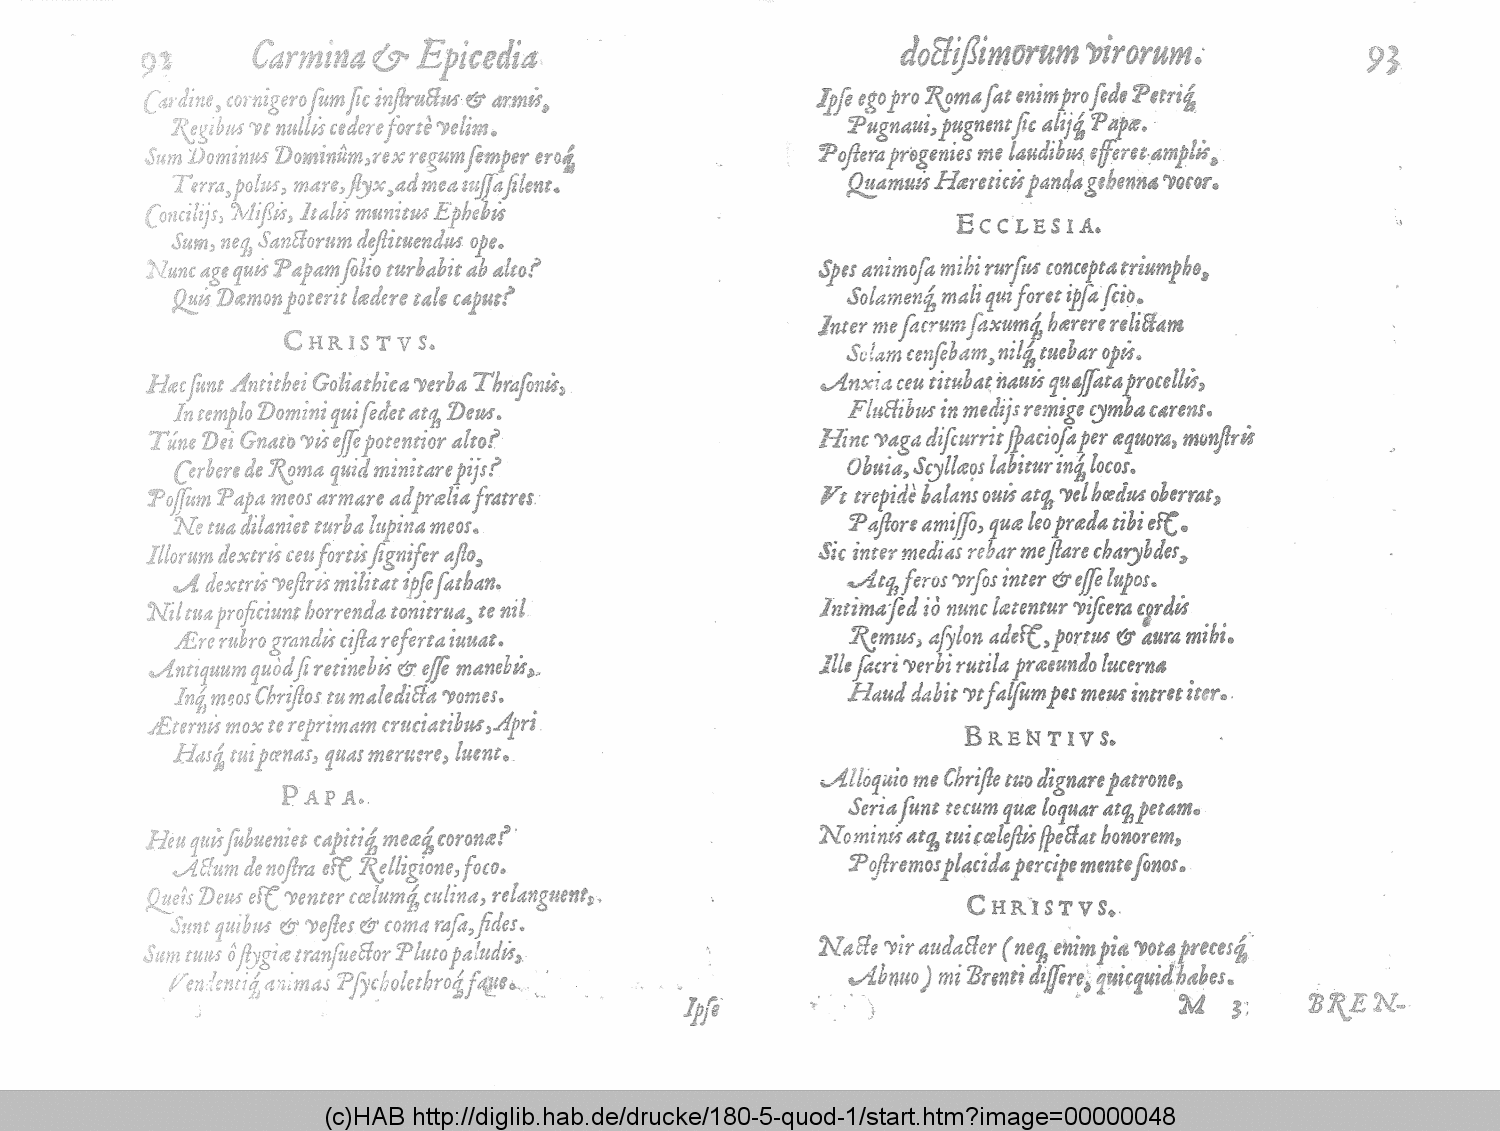 92 Carmina & Epicedia
Cardine, cornigero ſum ſic inſtructus & armis,
Regibus vt nullis cedere fortè velim.
Sum Dominus Dominûm, rex regum ſemper eroq́;
Terra, polus, mare, ſtyx, ad mea iuſſa ſilent.
Concilijs, Miſsis, Italis munitus Ephebis
Sum, neq; Sanctorum deſtituendus ope.
Nunc age quis Papam ſolio turbabit ab alto?
Quis Dæmon poterit lædere tale caput?
CHRISTVS.
Hæc ſunt Antithei Goliathica verba Thraſonis,
In templo Domini qui ſedet atq; Deus.
Túne Dei Gnato vis eſſe potentior alto?
Cerbere de Roma quid minitare pijs?
Poſſum Papa meos armare ad prælia fratres
Ne tua dilaniet turba lupina meos.
Illorum dextris ceu fortis ſignifer aſto,
A dextris veſtris militat ipſe ſathan.
Nil tua proficiunt horrenda tonitrua, te nil
Ære rubro grandis ciſta referta iuuat.
Antiquum quòd ſi retinebis & eſſe manebis,
Inq́; meos Chriſtos tu maledicta vomes.
Æternis mox te reprimam cruciatibus, Apri
Hasq́; tui pœnas, quas meruere, luent.
PAPA.
Heu quis ſubueniet capitiq́; meæq́; coronæ?
Actum de noſtra eſt Relligione, foco.
Queîs Deus eſt venter cœlumq́; culina, relanguent,
Sunt quibus & veſtes & coma raſa, fides.
Sum tuus ô ſtygiæ tranſuector Pluto paludis,
Vendentiq́; animas Pſycholethroq́; faue.
Ipſe
doctiſsimorum virorum. 93
Ipſe ego pro Roma ſat enim pro ſede Petriq́;
Pugnaui, pugnent ſic alijq́; Papæ.
Poſtera progenies me laudibus efferet amplis,
Quamuis Hæreticis panda gehenna vocor.
ECCLESIA.
Spes animoſa mihi rurſus concepta triumpho,
Solamenq́; mali qui foret ipſa ſcio.
Inter me ſacrum ſaxumq́; hærere relictam
Solam cenſebam, nilq́; tuebar opis.
Anxia ceu titubat nauis quaſſata procellis,
Fluctibus in medijs remige cymba carens.
Hinc vaga diſcurrit ſpacioſa per æquora, monſtris
Obuia, Scyllæos labitur inq́; locos.
Vt trepidè balans ouis atq; vel hœdus oberrat,
Paſtore amiſſo, quæ leo præda tibi eſt.
Sic inter medias rebar me ſtare charybdes,
Atq; feros vrſos inter & eſſe lupos.
Intima ſed iò nunc lætentur viſcera cordis
Remus, aſylon adeſt, portus & aura mihi.
Ille ſacri verbi rutila præeundo lucerna
Haud dabit vt falſum pes meus intret iter.
BRENTIVS.
Alloquio me Chriſte tuo dignare patrone,
Seria ſunt tecum quæ loquar atq; petam.
Nominis atq; tui cœleſtis ſpectat honorem,
Poſtremos placida percipe mente ſonos.
CHRISTVS.
Nacte vir audacter (neq; enim pia vota precesq́;
Abnuo) mi Brenti differe, quicquid habes.
M 3 BREN-
(c)HAB http://diglib.hab.de/drucke/180-5-quod-1/start.htm?image=00000048